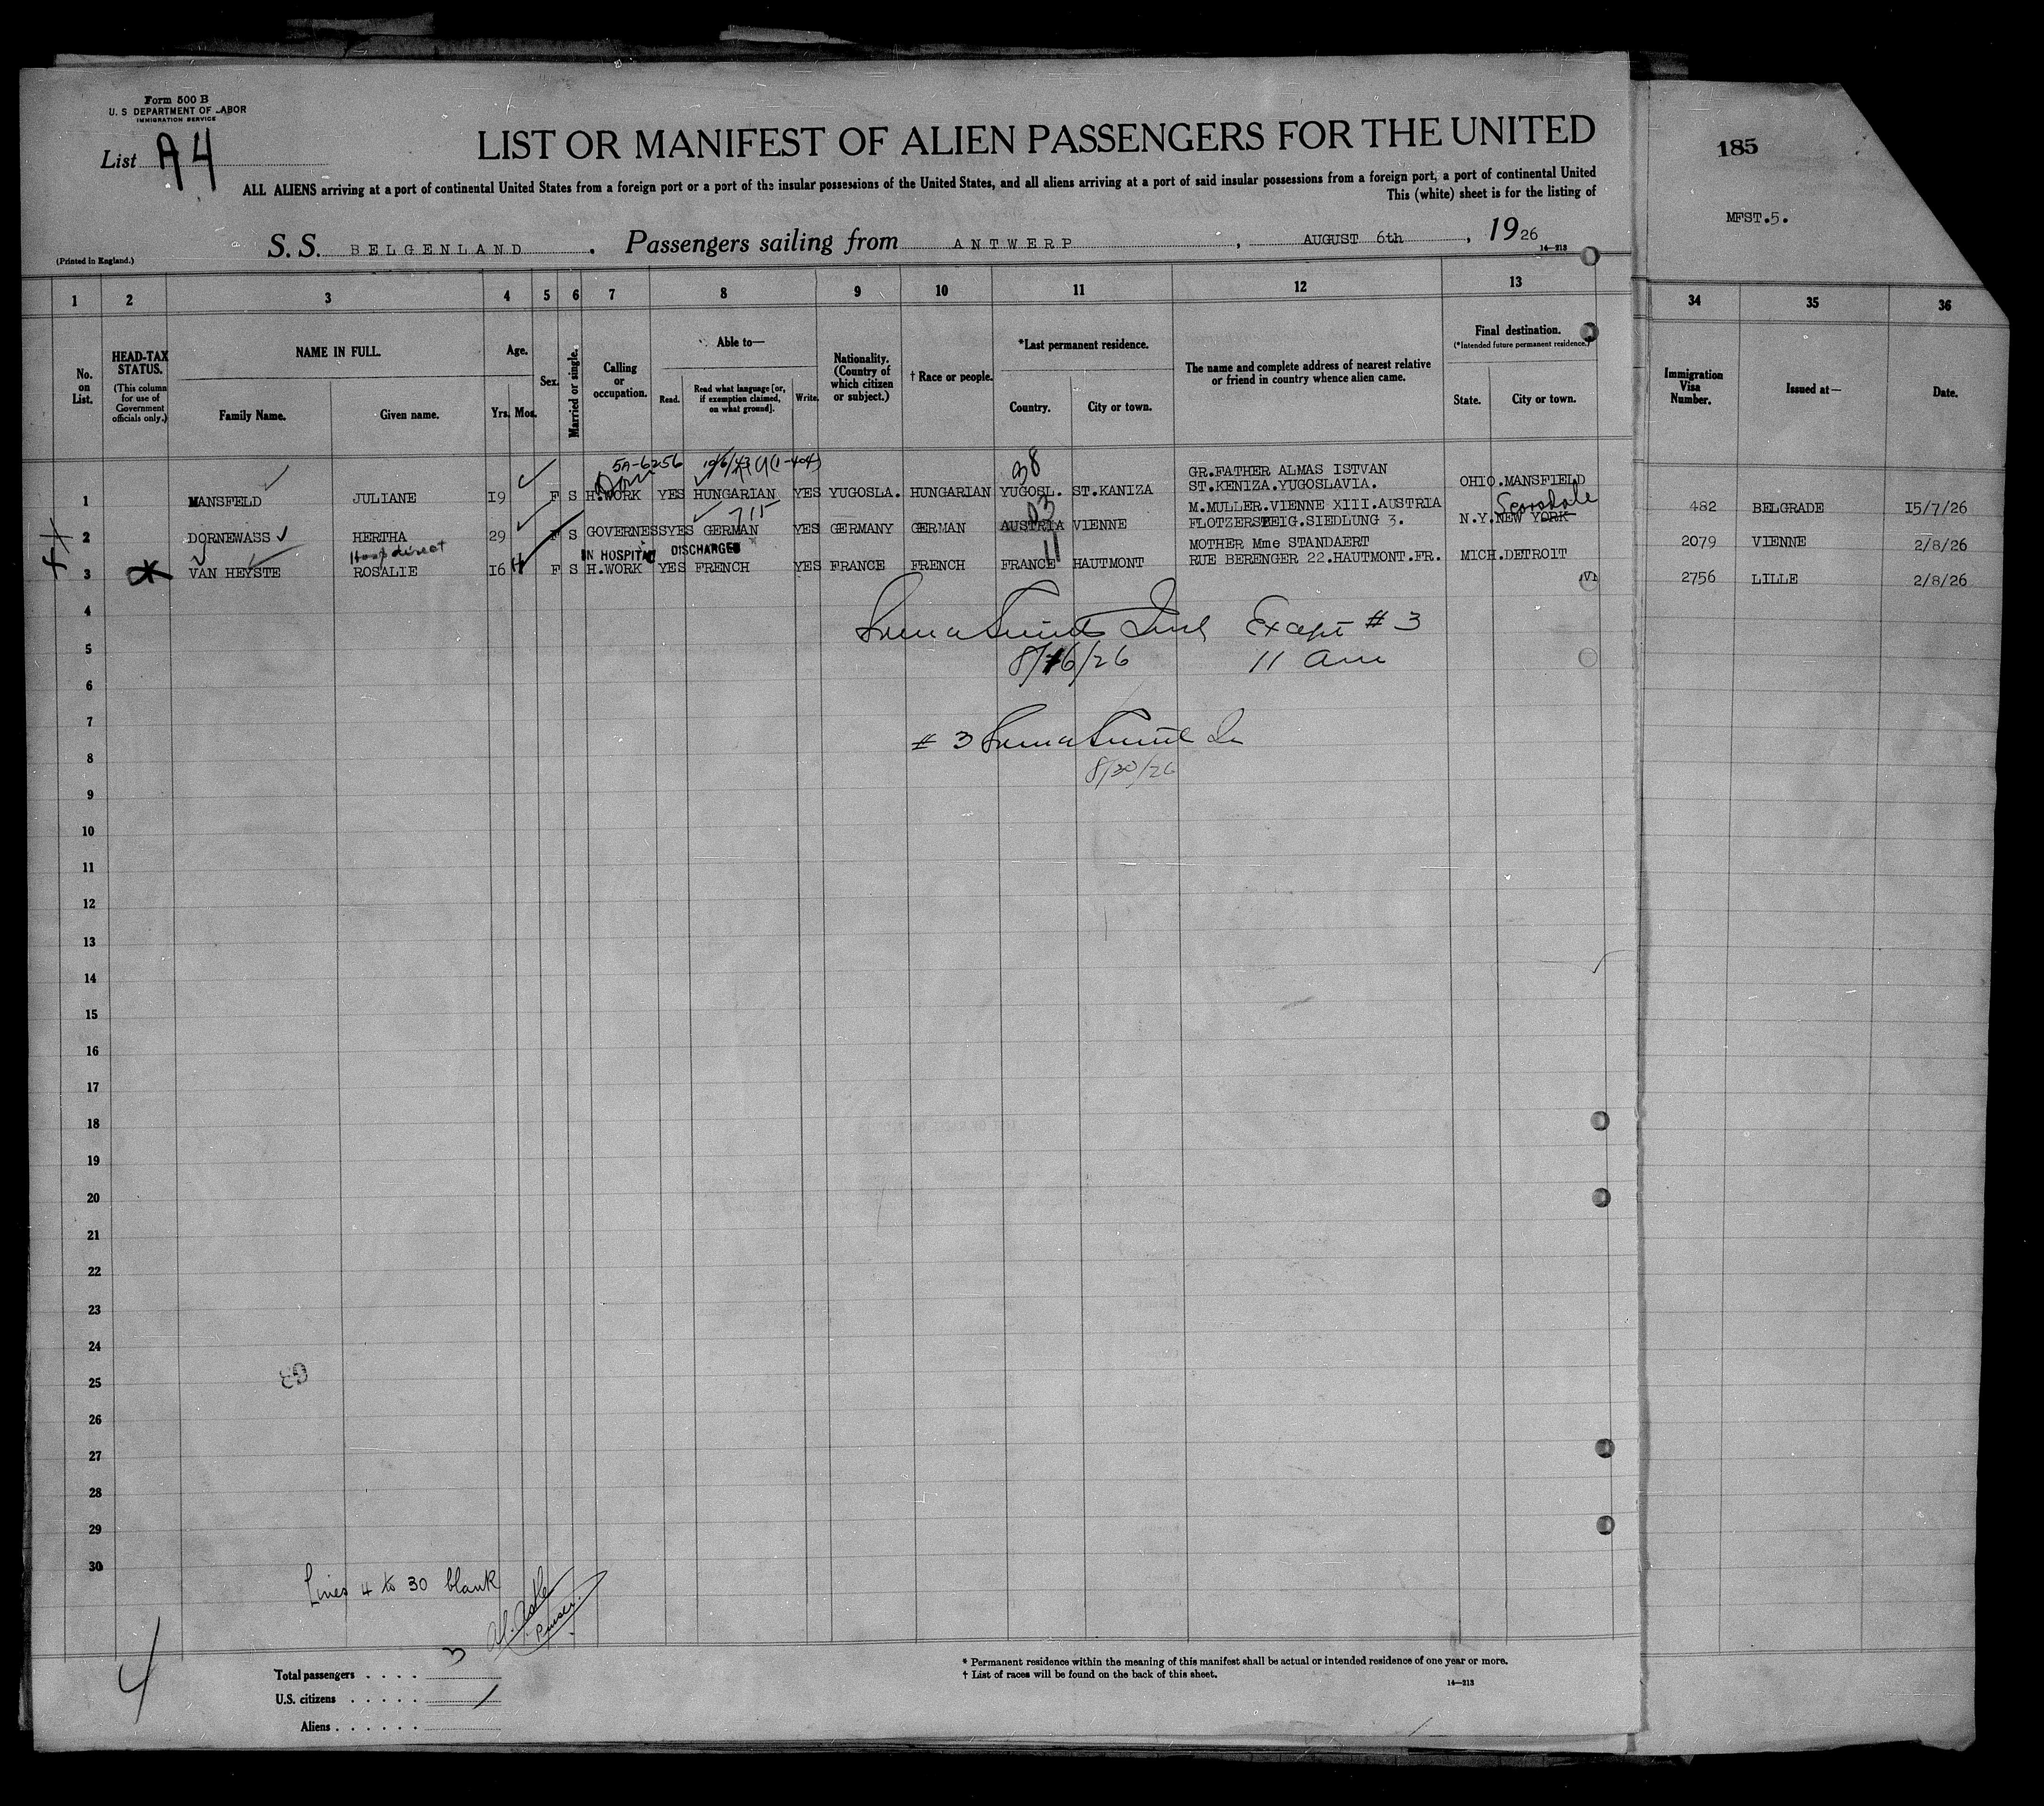 Form 500 B
U. S DEPARTMENT OF LABOR
IMMIGRATION SERVICE
List A4
LIST OR MANIFEST OF ALIEN PASSENGERS FOR THE UNITED
ALL ALIENS arriving at a port of continental United States from a foreign port or a port of the insular possessions of the United States, and all aliens arriving at a port of said insular possessions from a foreign port, a port of continental United
This (white) sheet is for the listing of
185
MFST.5.
(Printed in England.)
S. S. BELGENLAND . Passengers sailing from ANTWERP , AUGUST 6th , 1926
14—213
1 2 3 4 5 6 7 8 9 10 11 12 13 34 35 36
No. on List.
HEAD-TAX STATUS.
(This column for use of Government officials only.)
NAME IN FULL.
Family Name. Given name.
Age.
Yrs. Mos.
Sex.
Married or single.
Calling or occupation.
Able to—
Read. Read what language [or, if exemption claimed, on what ground]. Write.
Nationality. (Country of which citizen or subject.)
† Race or people.
*Last permanent residence.
Country. City or town.
The name and complete address of nearest relative or friend in country whence alien came.
Final destination.
(*Intended future permanent residence.)
State. City or town.
Immigration Visa Number.
Issued at—
Date.
5A-6256
38
GR.FATHER ALMAS ISTVAN
1 MANSFELD JULIANE I9 F S H.WORK YES HUNGARIAN YES YUGOSLA. HUNGARIAN YUGOSL. ST.KANIZA ST.KENIZA.YUGOSLAVIA. OHIO.MANSFIELD 482 BELGRADE I5/7/26
715 03 M.MULLER.VIENNE XIII.AUSTRIA Scarsdale
2 DORNEWASS HERTHA 29 F S GOVERNESS YES GERMAN YES GERMANY GERMAN AUSTRIA VIENNE FLOTZERSTEIG.SIEDLUNG 3. N.Y.NEW YORK 2079 VIENNE 2/8/26
IN HOSPITAL DISCHARGED 11 MOTHER Mme STANDAERT
3 VAN HEYSTE ROSALIE I6 F S H.WORK YES FRENCH YES FRANCE FRENCH FRANCE HAUTMONT RUE BERENGER 22.HAUTMONT.FR. MICH.DETROIT 2756 LILLE 2/8/26
4
Except # 3
5
8/16/26 11 am
6
7
# 3
8
8/30/26
9
10
11
12
13
14
15
16
17
18
19
20
21
22
23
24
25
26
27
28
29
30
Lines 4 to 30 blank
Purser.
4
Total passengers . . . . 3
U.S. citizens . . . . .
Aliens . . . . . .
* Permanent residence within the meaning of this manifest shall be actual or intended residence of one year or more.
† List of races will be found on the back of this sheet.
14—213